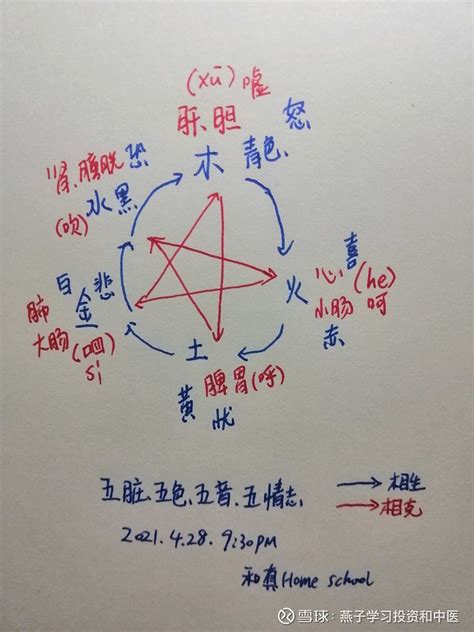 (xū)嘘
肝.胆 怒
木 青色.
肾.膀胱 恐
水 黑
(吹)
喜
火 心 (he)
小肠 呵
赤
白 悲
金
肺
大肠(呬)
sī
土
黄 脾胃(呼)
忧
五脏.五色.五音.五情志.
→相生
→相克
2021.4.28. 9:30PM
和真Home school
雪球：燕子学习投资和中医